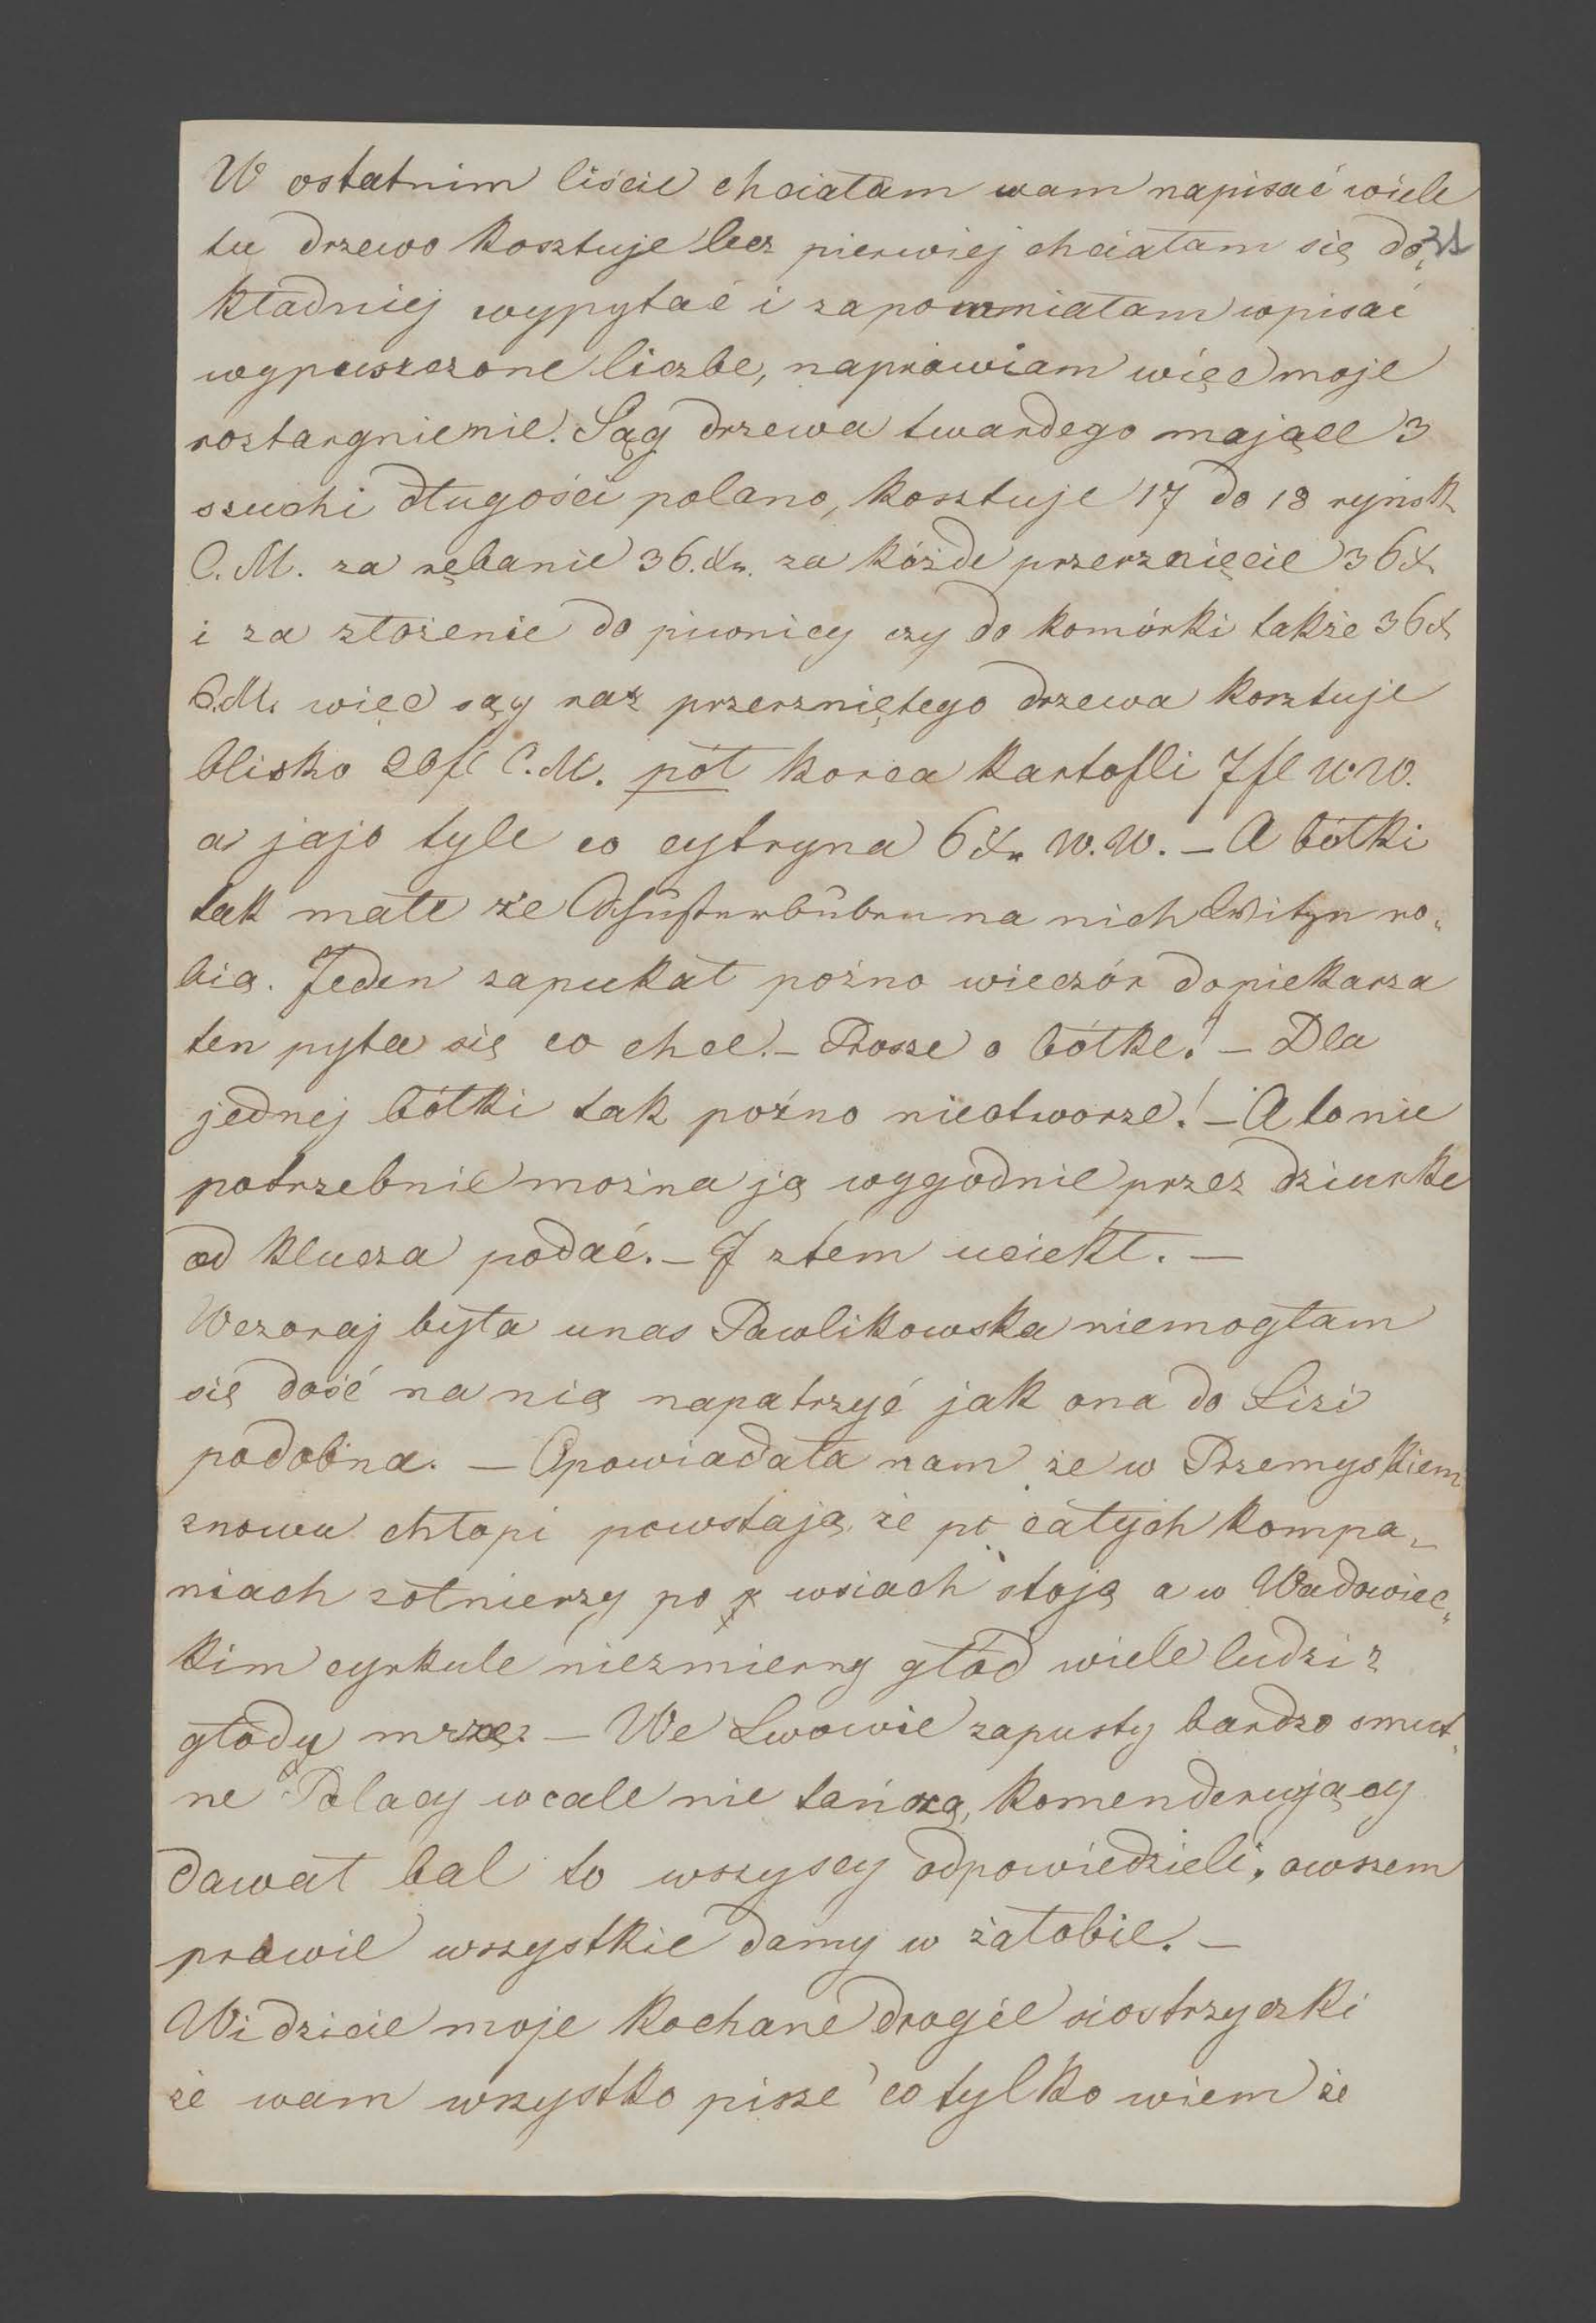 W ostatnim liście chciałam wam napisać wiele
tu drzewo kosztuje lecz pierwiej chciałam się do„
31
kładniej wypytać i zapomniałam wpisać
wypuszczone liczbe, naprawiam więc moje
roztargnienie. Sąg drzewa twardego mające 3
szuchi długości polano, kosztuje 17 do 18 ryńsk
C.M. za rębanie 36.xr. za kóżde przerznięcie 36x.
i za złożenie do piwnicy czy do komórki także 36x
C.M. więc sąg raz przerzniętego drzewa kosztuje
blisko 20fl C.M. pół korca kartofli 7fl W.W.
a jajo tyle co cytryna 6xr W.W. – A bółki
tak małe że Schusterbuben na nich Witze ro„
bią. Jeden zapukał poźno wieczór do piekarza
ten pyta się co chce. – Prosze o bółke! – Dla
jednej bółki tak poźno nieotworze! – A to nie
potrzebnie można ją wygodnie przez dziurke
od klucza podać. – I ztem uciekł. –
Wczoraj była unas Pawlikowska niemogłam
się dość na nią napatrzyć jak ona do Lizi
podobna. – Opowiadała nam że w Przemyskiem
znowu chłopi powstają, że po całych kompa„
niach żołnierzy po wsiach stoją a w Wadowiec„
kim cyrkule niezmierny głód wiele ludzi z
głodu mrze. – We Lwowie zapusty bardzo smut„
ne Polacy wcale nie tańczą, komenderujący
dawał bal to wszyscy odpowiedzieli, owszem
prawie wszystkie damy w żałobie. –
Widzicie moje kochane drogie siostrzyczki
że wam wszystko pisze co tylko wiem że